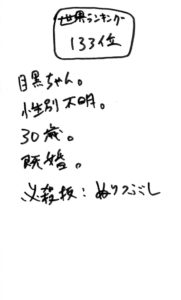 世界ランキング
133位
目黒ちゃん。
性別不明。
30歳。
既婚。
必殺技：ぬりつぶし